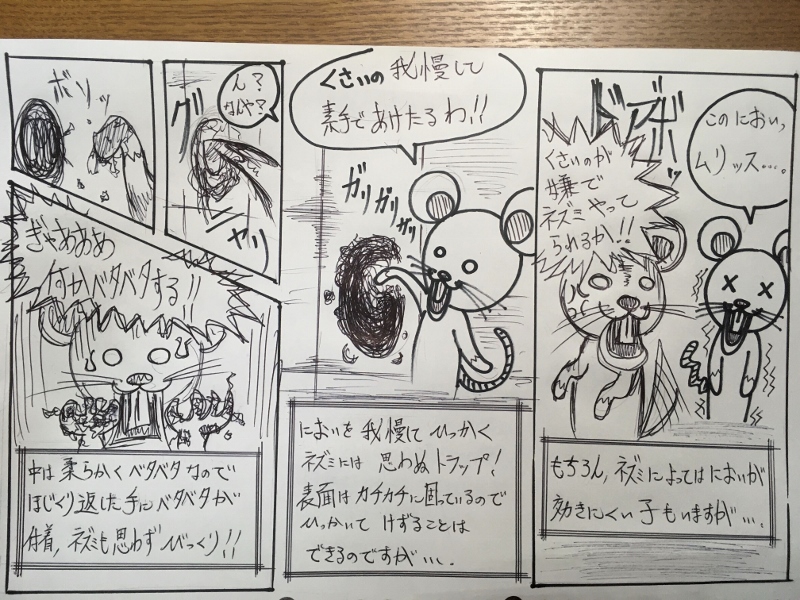 このにおいっ
ムリッス…。
ドアボッ
くさいのが
嫌で
ネズミやって
られるか!!
もちろん、ネズミによってはにおいが
効きにくい子もいますが…。
くさいの我慢して
素手であけたるわ!!
ガリガリガリ
においを我慢してひっかく
ネズミには思わぬトラップ!
表面はカチカチに固っているので
ひっかいてけずることは
できるのですが…。
ん?
なんや?
グ
ニャリ
ボリッ
ぎゃああめ
何かベタベタする!!
中は柔らかくベタベタなので
ほじくり返した手にベタベタが
付着、ネズミも思わずびっくり!!